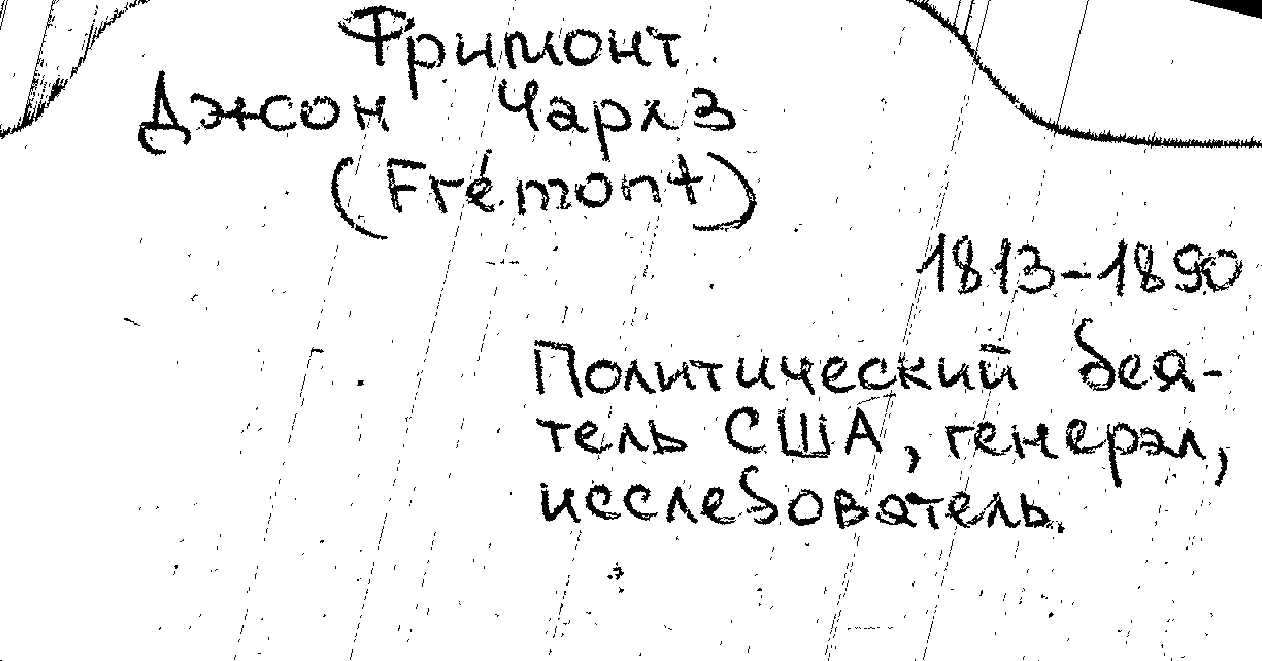 Фримонт
Джон Чарлз
(Frémont)
1813-1890
Политический дея-
тель США, генерал,
исследователь.